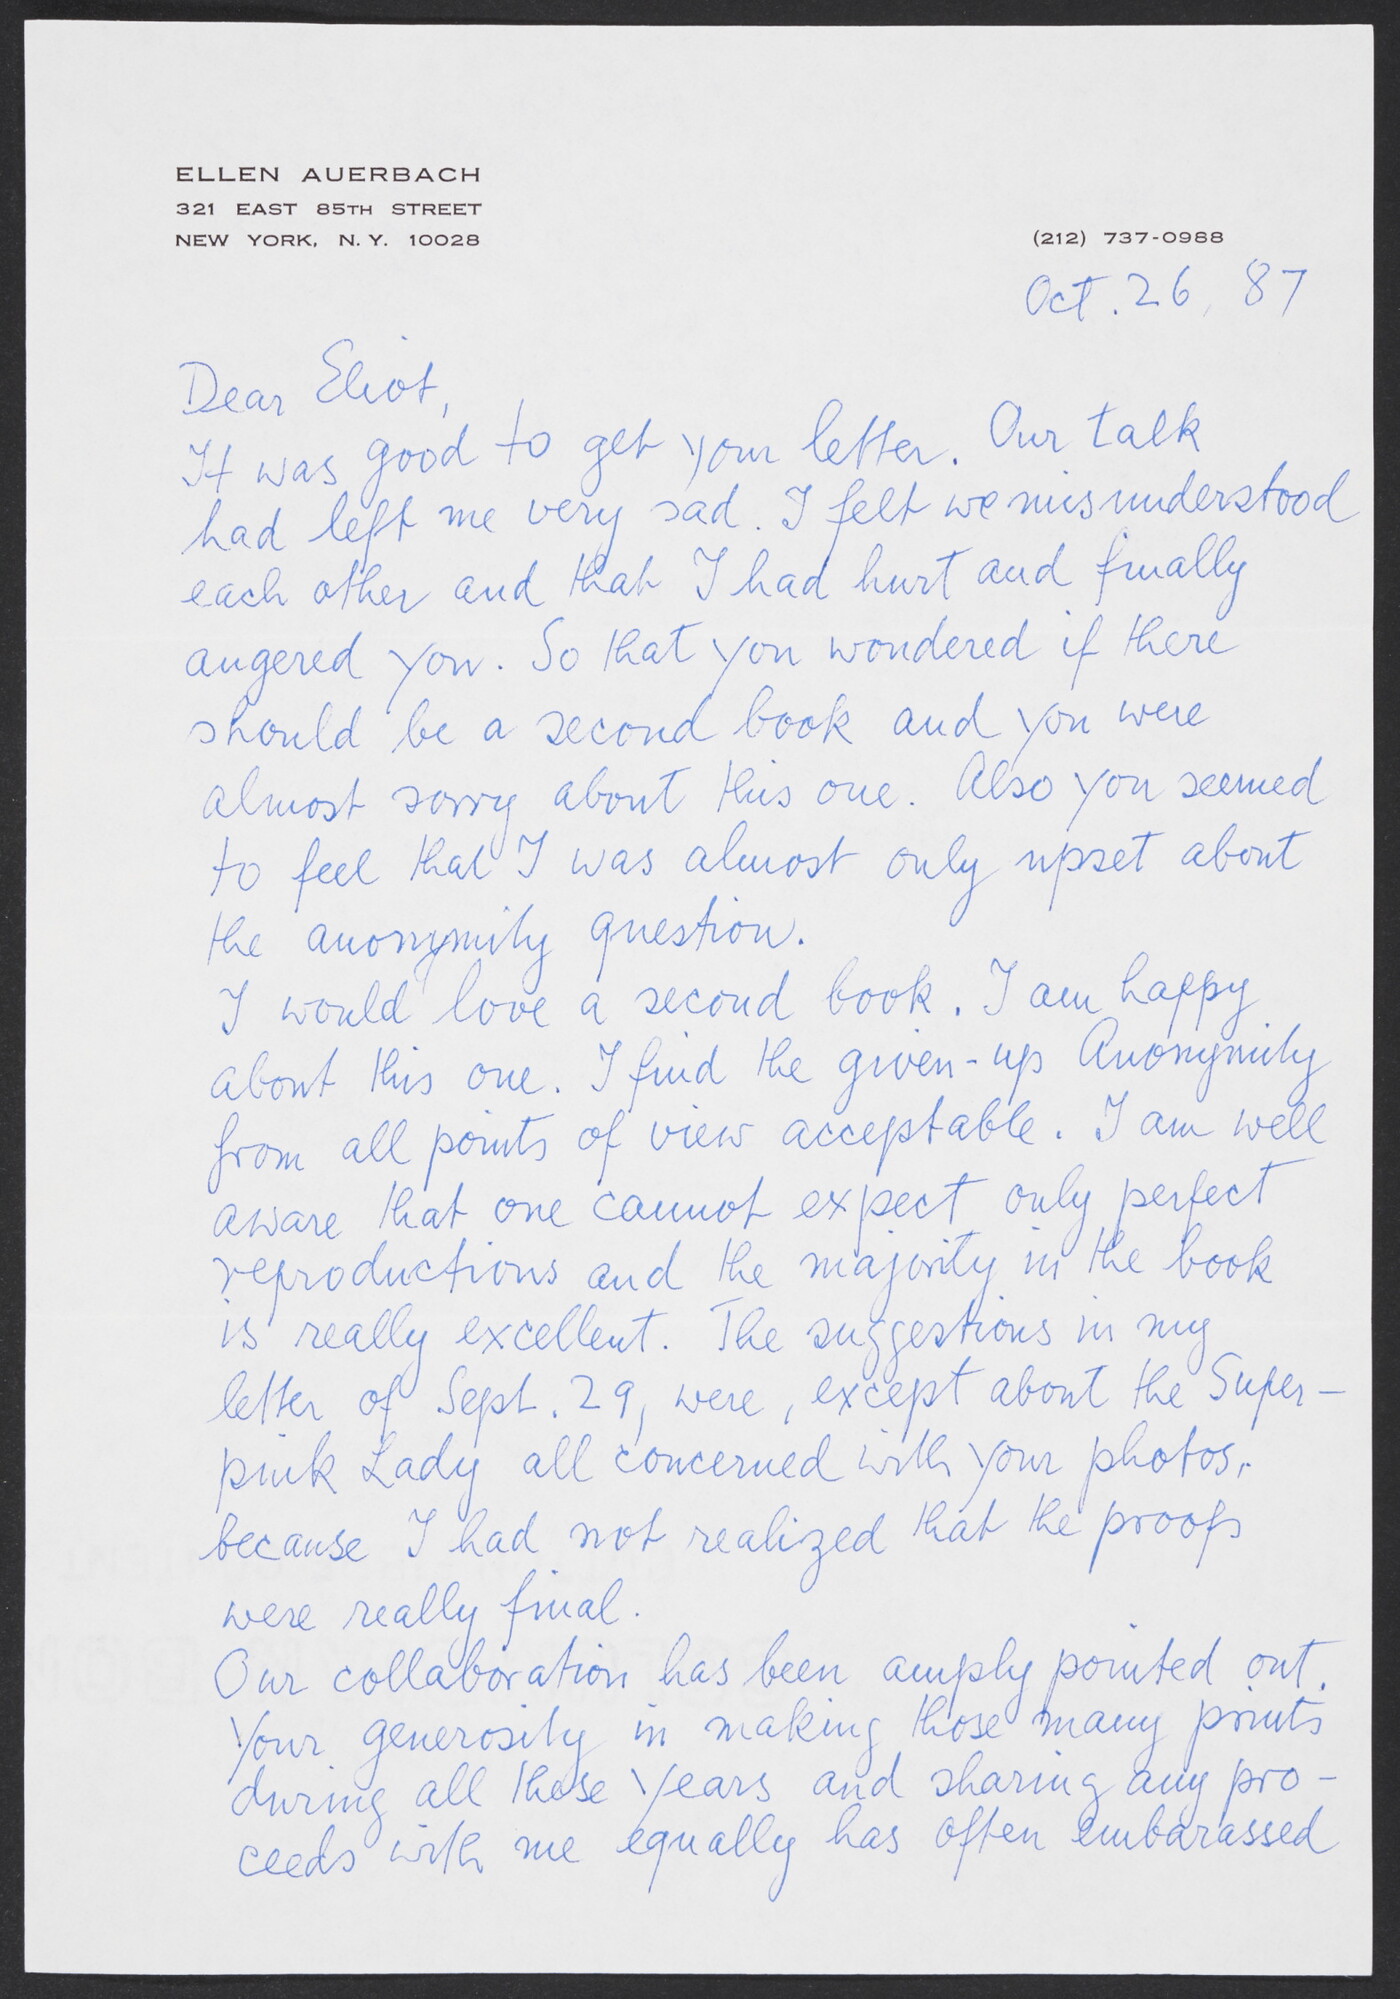 ELLEN AUERBACH
321 EAST 85TH STREET
NEW YORK, N.Y. 10028
(212) 737-0988
Oct. 26, 87
Dear Eliot,
It was good to get your letter. Our talk
had left me very sad. I felt we misunderstood
each other and that I had hurt and finally
angered you. So that you wondered if there
should be a second book and you were
almost sorry about this one. Also you seemed
to feel that I was almost only upset about
the anonymity question.
I would love a second book. I am happy
about this one. I find the given-up Anonymity
from all points of view acceptable. I am well
aware that one cannot expect only perfect
reproductions and the majority in the book
is really excellent. The suggestions in my
letter of Sept. 29, were, except about the Super-
pink Lady all concerned with your photos,
because I had not realized that the proofs
were really final.
Our collaboration has been amply pointed out.
Your generosity in making those many prints
during all these years and sharing any pro-
ceeds with me equally has often embarassed